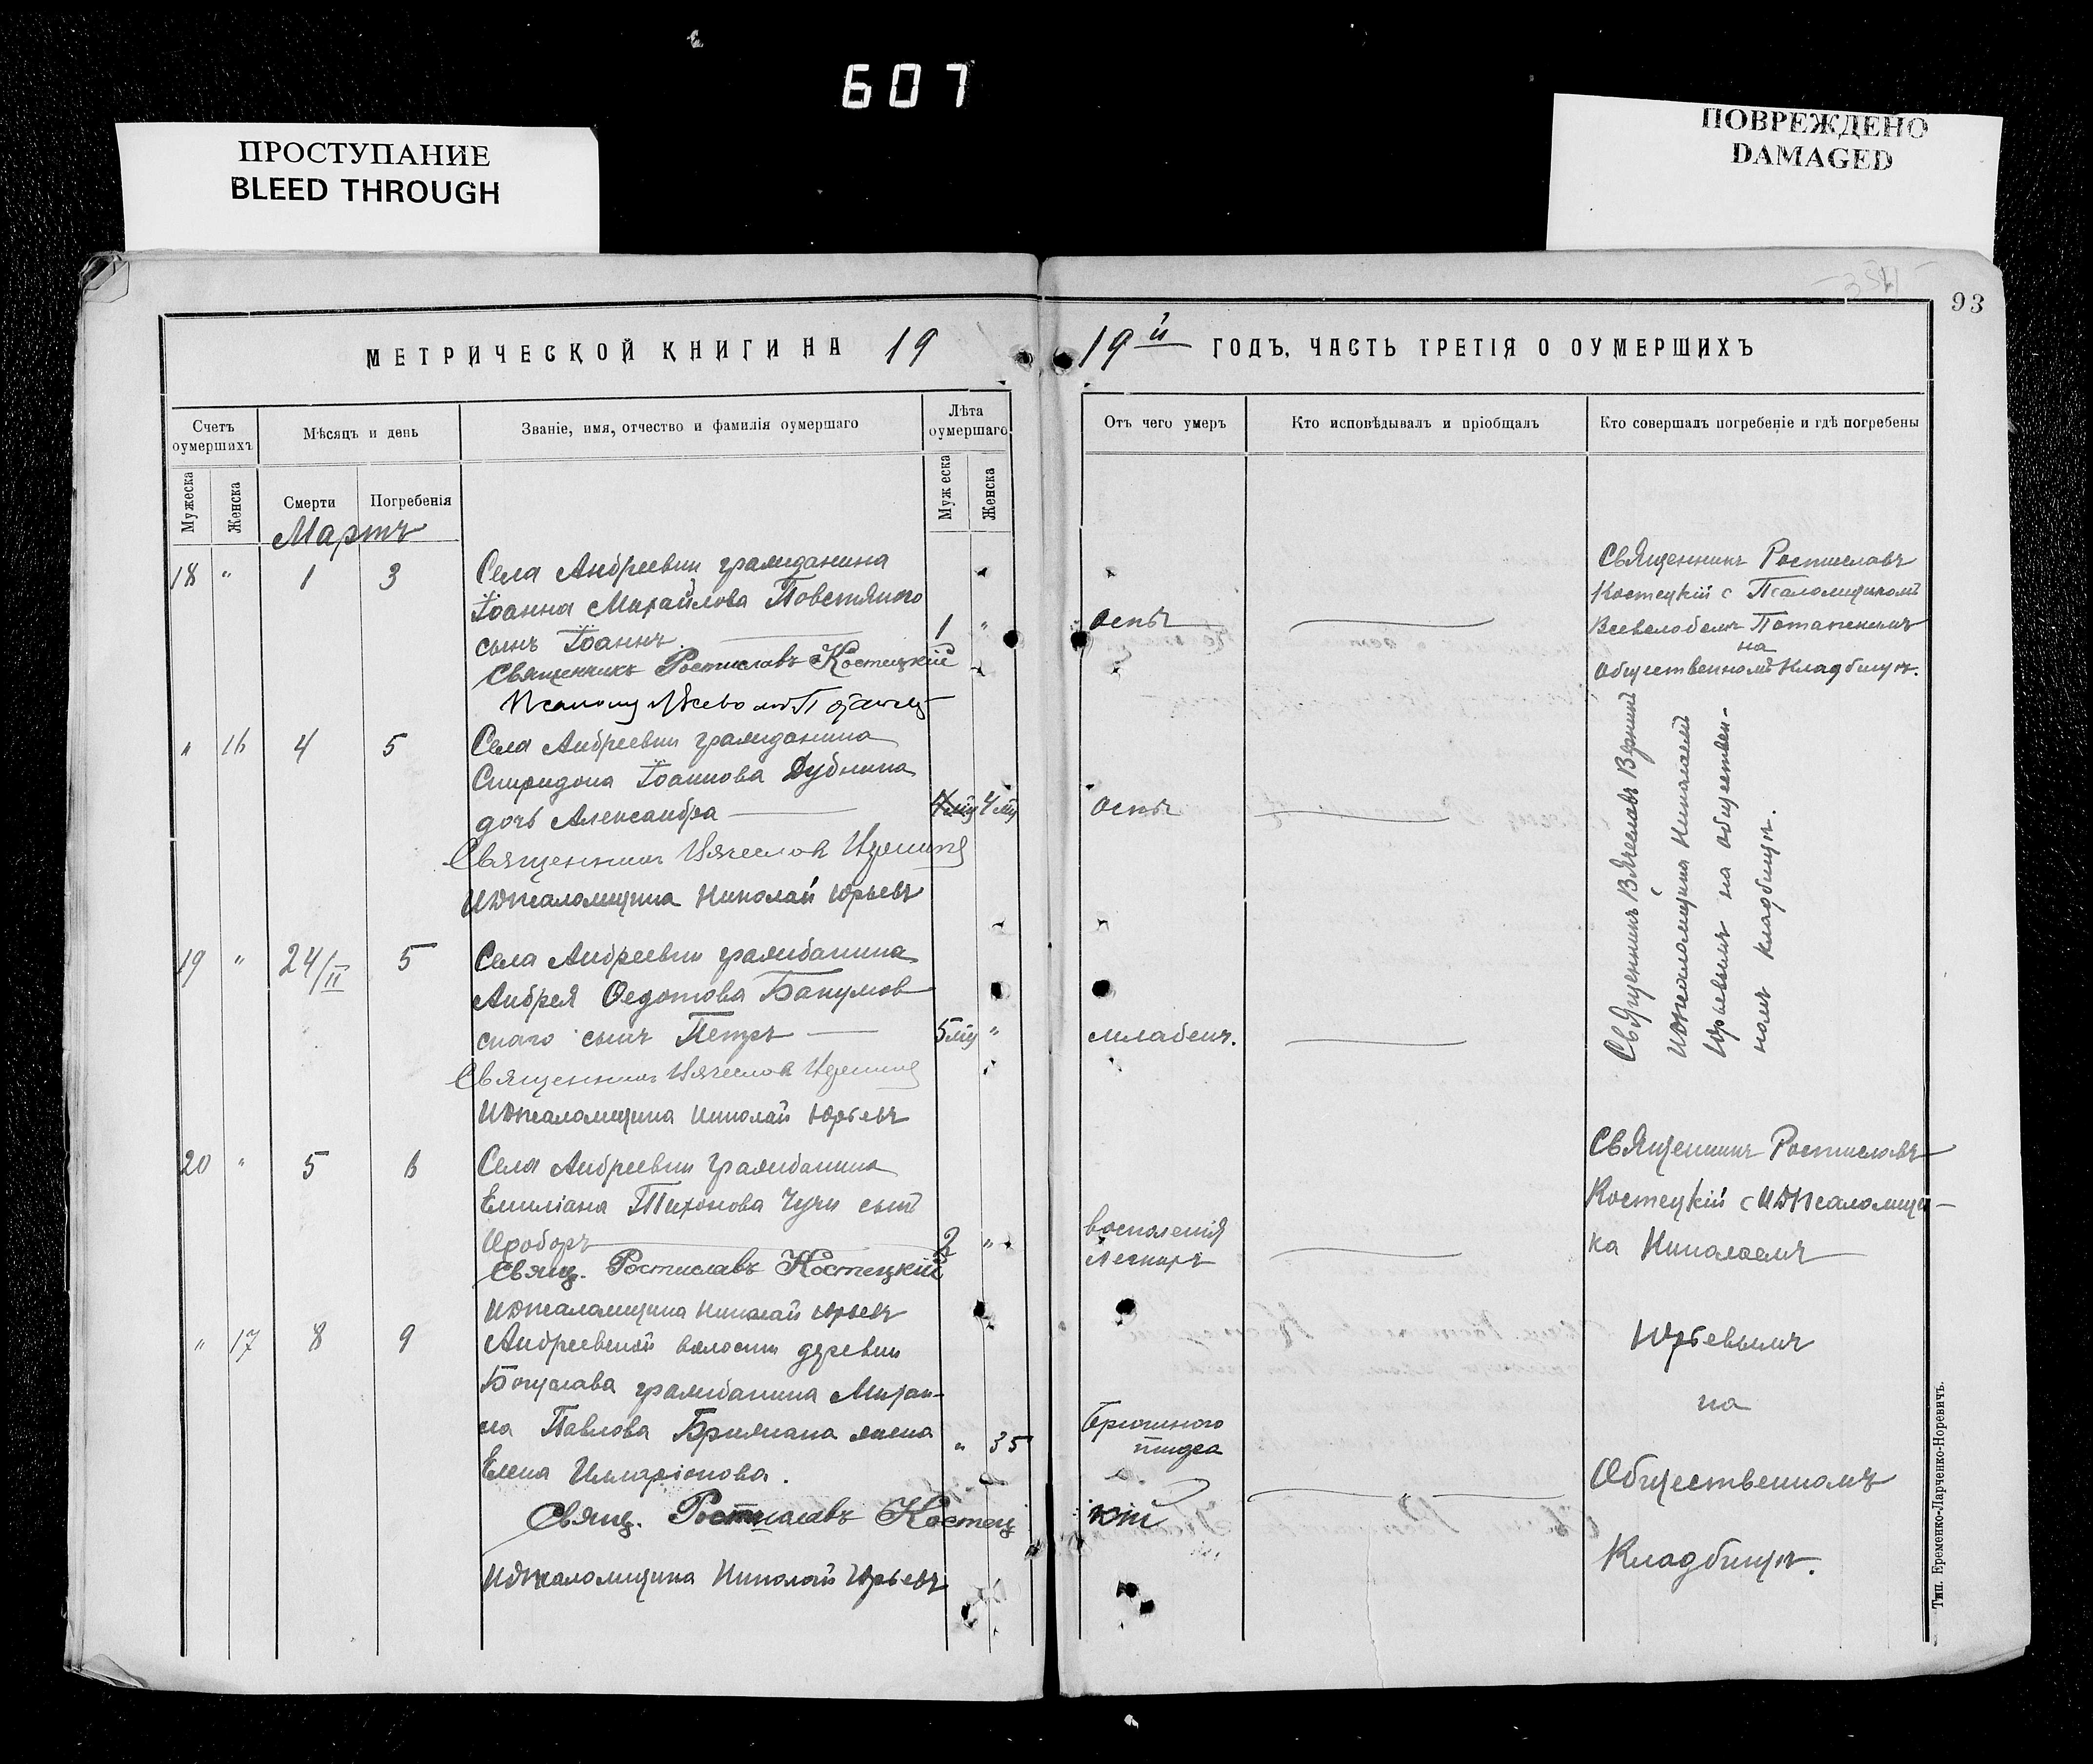 607
ПРОСТУПАНИЕ
BLEED THROUGH
ПОВРЕЖДЕНО
DAMAGED
93
МЕТРИЧЕСКОЙ КНИГИ НА 19
19й ГОДЪ, ЧАСТЬ ТРЕТІЯ О ОУМЕРШИХЪ
Счетъ оумершихъ
Мѣсяцъ и день
Званіе, имя, отчество и фамилія оумершаго
Лѣта оумершаго
Отъ чего умеръ
Кто исповѣдывалъ и пріобщалъ
Кто совершалъ погребеніе и гдѣ погребены
Мужеска
Женска
Смерти
Погребенія
Муж еска
Женска
Мартъ
18 " 1 3
Села Андреевки гражданина
Іоанна Михайлова Товстяного
сынъ Іоаннъ
1 "
оспы
Священникъ Ростиславъ Костецкій
Священникъ Ростиславъ
Костецкій с Псаломщикомъ
Всеволодомъ Потапенкомъ
на
Общественномъ Кладбищѣ.
" 16 4 5
Села Андреевки гражданина
Спиридона Іоаннова Дубнина
дочь Александра
4 мц
оспы
Священник Вячеслов
ИДПсаломщика Николай Юрьевъ
Священникъ Вячеславъ
с
ИДПсаломщика Николаемъ
Юрьевымъ на обществен-
номъ кладбищѣ.
19 " 24/II 5
Села Андреевки гражданина
Андрея Федотова Бакумов
скаго сынъ Петръ
5 мц "
младенч.
Священник Вячеслов
ИДПсаломщика Николай Юрьевъ
20 " 5 6
Села Андреевки гражданина
Емиліана Тихонова Чучи сынъ
Феодоръ
2 "
воспаленія
легкихъ
Свящ. Ростиславъ Костецкій
ИДПсаломщика Николай Юрьевъ
Священникъ Ростиславъ
Костецкій с ИДПсаломщи-
ка Николаемъ
Юрьевымъ
на
Общественномъ
Кладбищѣ.
" 17 8 9
Андреевской волости деревни
Богуслава гражданина Миха-
ла Павлова жена
Елена Илларіонова.
" 35
Брюшного
тифа
Свящ. Ростиславъ Костец
кій
ИДПсаломщика Николай Юрьевъ
Тип. Еременко-Ларченко-Норевичъ.